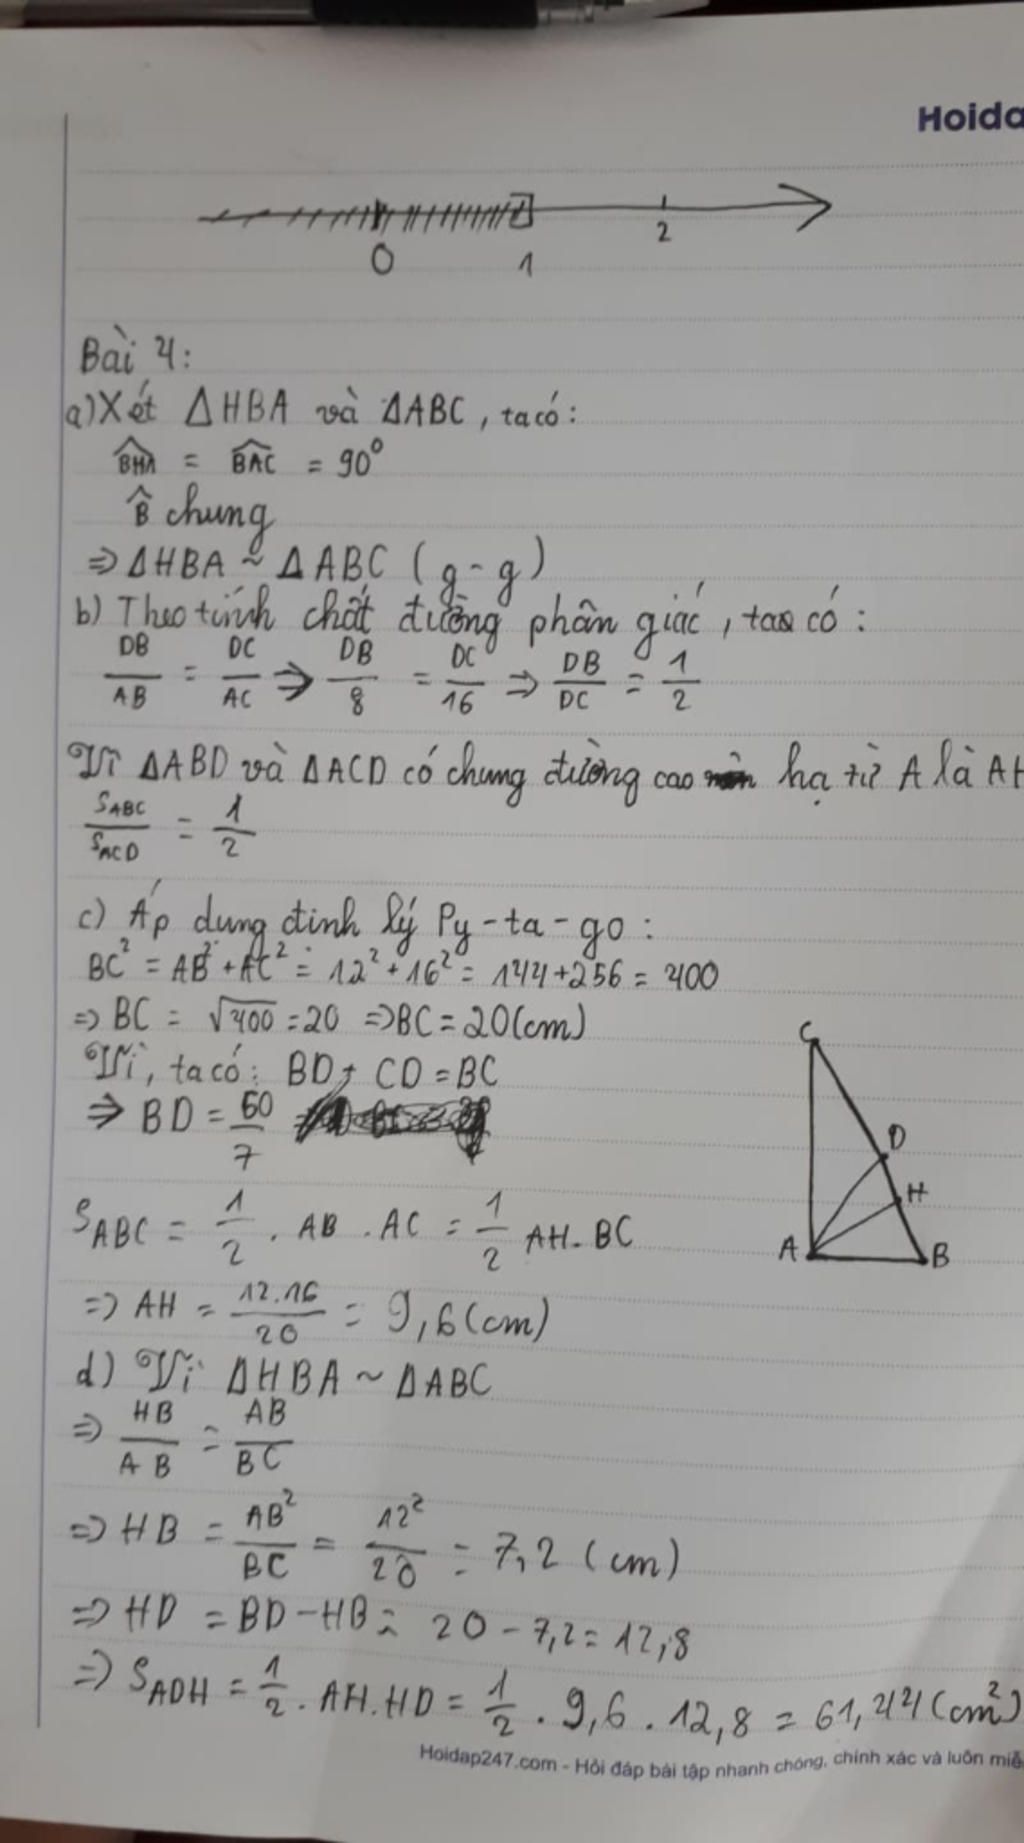 Hoida
0 1 2
Bài 4:
a) Xét ΔHBA và ΔABC, ta có:
BHA = BAC = 90°
B̂ chung
⇒ ΔHBA ~ ΔABC (g-g)
b) Theo tính chất đường phân giác, ta có:
DB/AB = DC/AC ⇒ DB/8 = DC/16 ⇒ DB/DC = 1/2
Vì ΔABD và ΔACD có chung đường cao hạ từ A là AH
S_ABC/S_ACD = 1/2
c) Áp dung đinh lý Py-ta-go:
BC² = AB² + AC² = 12² + 16² = 144 + 256 = 400
⇒ BC = √400 = 20 ⇒ BC = 20 (cm)
Vì, ta có: BD + CD = BC
⇒ BD = 60/7
S_ABC = 1/2 . AB . AC = 1/2 AH . BC
⇒ AH = 12.16/20 = 9,6 (cm)
C
D
H
A B
d) Vì ΔHBA ~ ΔABC
⇒ HB/AB = AB/BC
⇒ HB = AB²/BC = 12²/20 = 7,2 (cm)
⇒ HD = BD - HB = 20 - 7,2 = 12,8
⇒ S_ADH = 1/2 . AH . HD = 1/2 . 9,6 . 12,8 = 61,44 (cm²)
Hoidap247.com - Hỏi đáp bài tập nhanh chóng, chính xác và luôn miễ